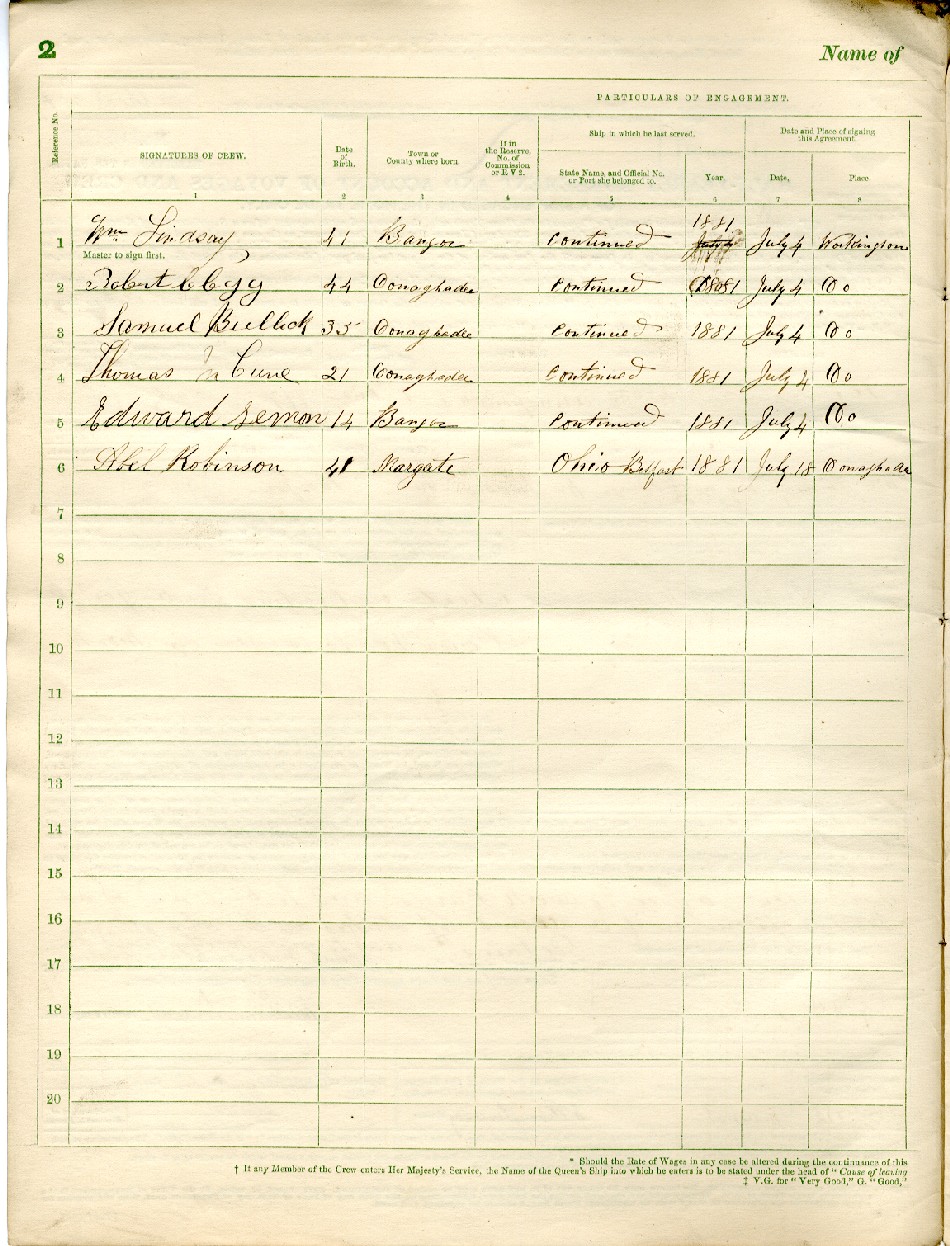 2 Name of
PARTICULARS OF ENGAGEMENT.
Reference No.
SIGNATURES OF CREW.
Date of Birth.
Town or County where born.
If in the Reserve, No. of Commission or R V 2.
Ship in which he last served.
Date and Place of signing this Agreement.
State Name, and Official No. or Port she belonged to.
Year.
Date,
Place
1 2 3 4 5 6 7 8
1 Wm Lindsay 41 Bangor Continued 1881 July 4 Workington
Master to sign first.
2 Robert Clegg 44 Donaghadee Continued 1881 July 4 Do
3 Samuel Bullock 35 Donaghadee Continued 1881 July 4 Do
4 Thomas Mc Cune 21 Donaghadee Continued 1881 July 4 Do
5 Edward Semon 14 Bangor Continued 1881 July 4 Do
6 Abel Robinson 41 Margate Ohio Belfast 1881 July 18 Donaghadee
7
8
9
10
11
12
13
14
15
16
17
18
19
20
* Should the Rate of Wages in any case be altered during the continuance of this
† If any Member of the Crew enters Her Majesty's Service, the Name of the Queen's Ship into which he enters is to be stated under the head of "Cause of leaving
‡ V.G. for "Very Good," G. "Good,"